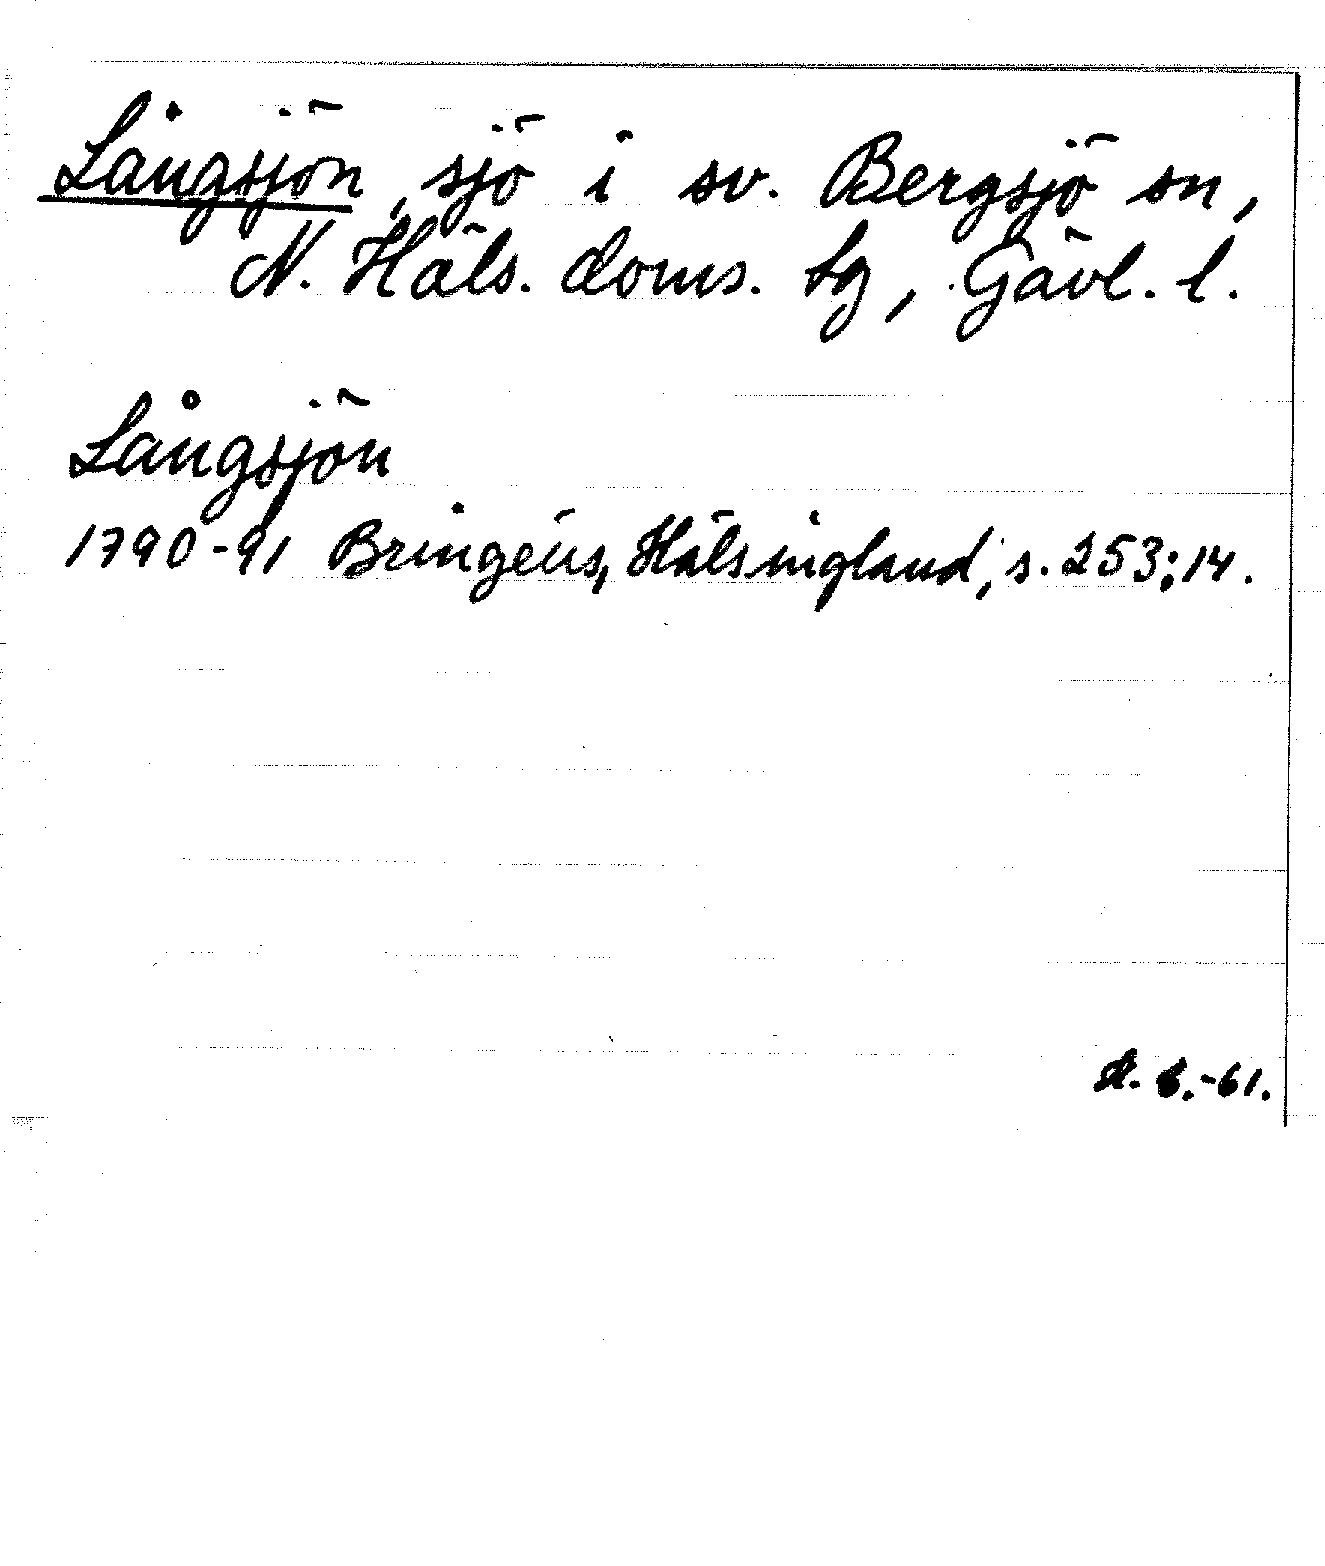 Långsjön, sjö i sv. Bergsjö sn,
N. Häls. doms. tg, Gävl. l.
Långsjön
1790-91 Bringéus, Hälsingland, s. 253:14.
-61.